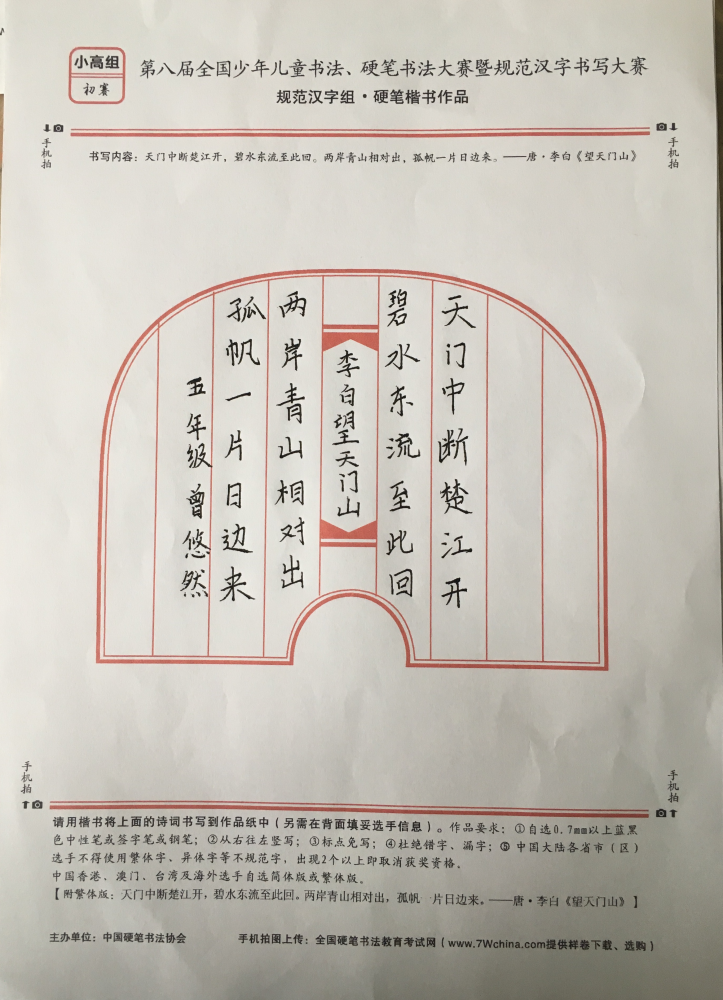 小高组
初赛
第八届全国少年儿童书法、硬笔书法大赛暨规范汉字书写大赛
规范汉字组·硬笔楷书作品
手机拍
手机拍
书写内容：天门中断楚江开，碧水东流至此回。两岸青山相对出，孤帆一片日边来。——唐·李白《望天门山》
天门中断楚江开
碧水东流至此回
李白望天门山
两岸青山相对出
孤帆一片日边来
五年级 曾悠然
手机拍
手机拍
请用楷书将上面的诗词书写到作品纸中（另需在背面填妥选手信息）。作品要求：①自选0.7mm以上蓝黑
色中性笔或签字笔或钢笔；②从右往左竖写；③标点免写；④杜绝错字、漏字；⑤中国大陆各省市（区）
选手不得使用繁体字、异体字等不规范字，出现2个以上即取消获奖资格。
中国香港、澳门、台湾及海外选手自选简体版或繁体版。
【附繁体版：天门中断楚江开，碧水东流至此回。两岸青山相对出，孤帆一片日边来。——唐·李白《望天门山》】
主办单位：中国硬笔书法协会
手机拍图上传：全国硬笔书法教育考试网（www.7Wchina.com提供样卷下载、选购）